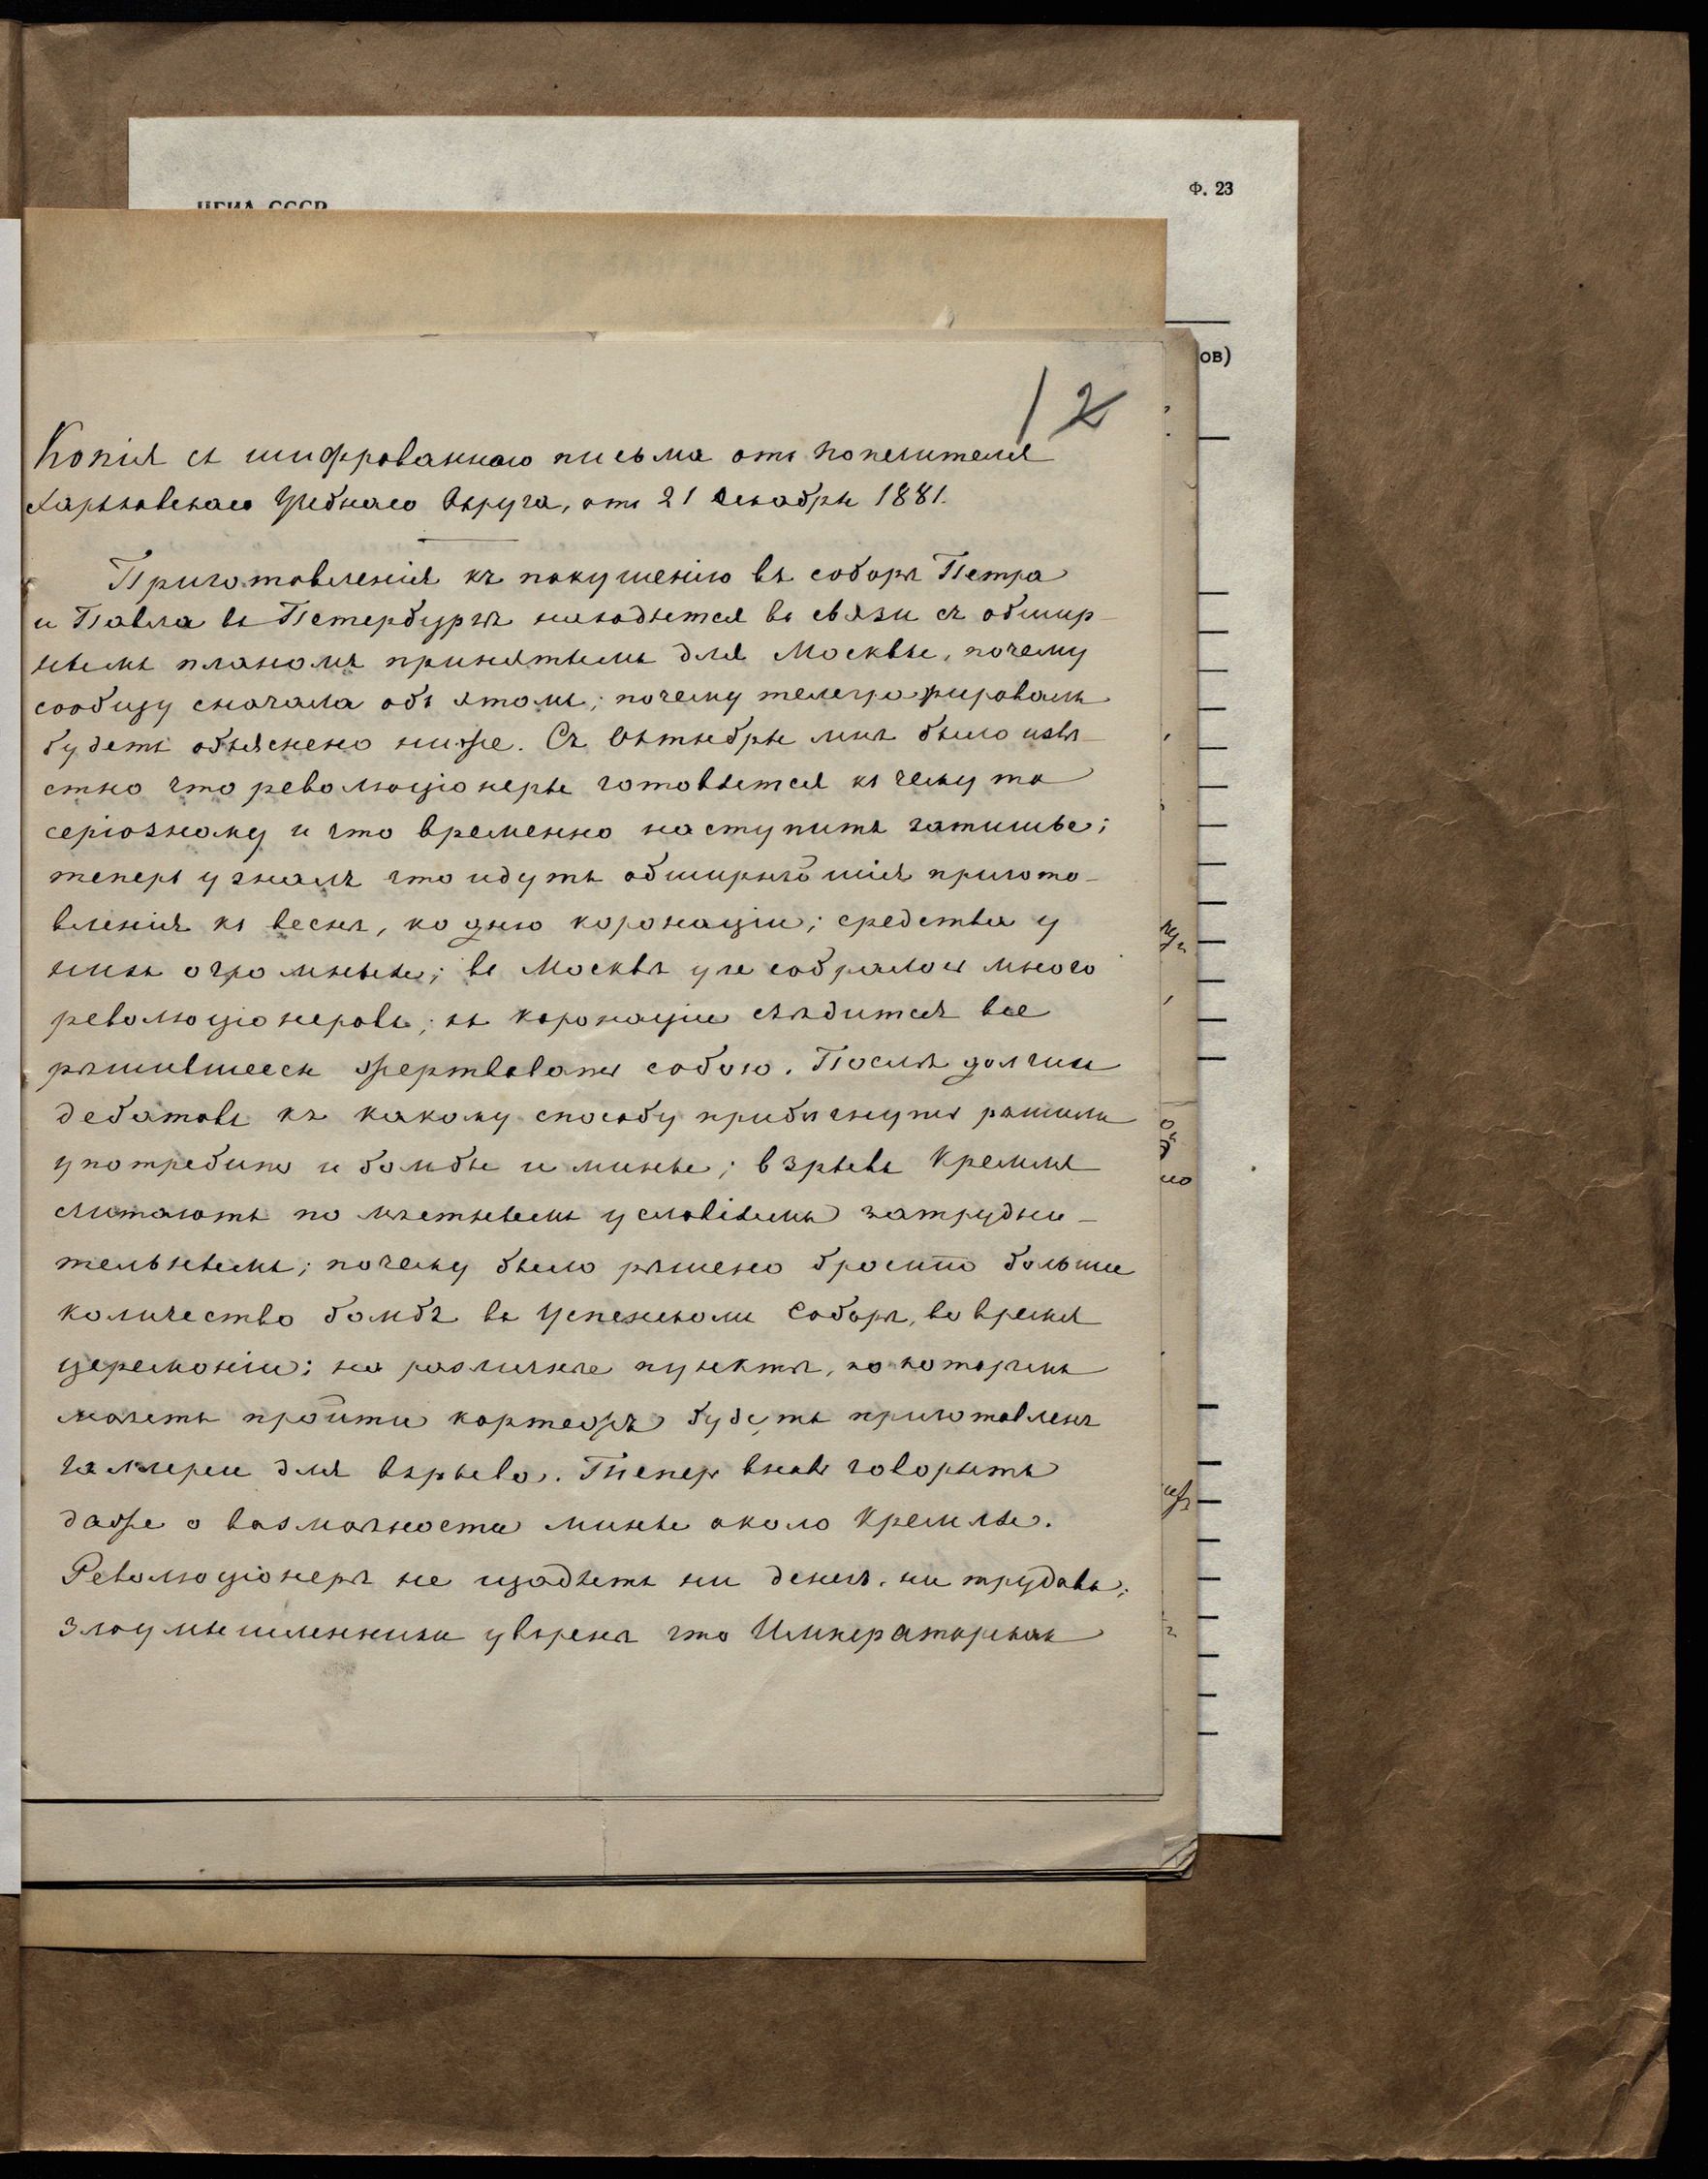 Ф. 23
ЦГИА СССР
ов)
12
Копія съ шифрованнаго письма отъ попечителя
Харьковскаго Учебнаго Округа, отъ 21 Декабря 1881.
Приготовленія къ покушенію въ соборѣ Петра
и Павла въ Петербургѣ находятся въ связи съ обшир-
нымъ планомъ принятымъ для Москвы, почему
сообщу сначала объ этомъ; почему телеграфировалъ
будетъ объяснено ниже. Съ Октября мнѣ было извѣ-
стно что революціонеры готовятся къ чему то
серіозному и что временно наступитъ затишье;
теперь узналъ что идутъ обширнѣйшія пригото-
вленія къ веснѣ, ко дню коронаціи; средства у
нихъ огромныя; въ Москвѣ уже собралось много
революціонеровъ; къ коронаціи съѣдится все
рѣшившееся жертвовать собою. Послѣ долгихъ
дебатовъ къ какому способу прибѣгнуть рѣшили
употребить и бомбы и мины; взрывъ Кремля
считаютъ по мѣстнымъ условіямъ затрудни-
тельнымъ; почему было рѣшено бросить больше
количество бомбъ въ Успенскомъ Соборѣ, во время
церемоніи; на различные пункты, по которымъ
можетъ пройти кортежъ будутъ приготовлены
галлереи для взрыва. Теперь вновь говорятъ
даже о возможности мины около Кремля.
Революціонеры не щадятъ ни денегъ, ни трудовъ;
злоумышленники увѣрены что Императорская